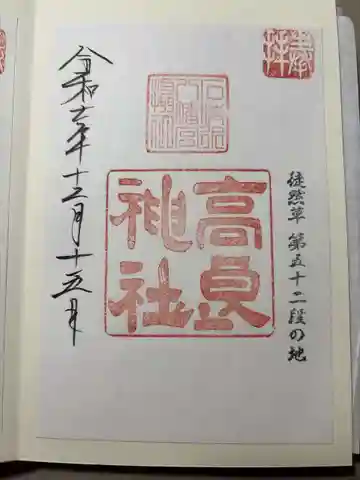 奉拝
徒然草 第五十二段の地
石清水八幡宮
摂社
高良
神社
令和六年十二月十五日